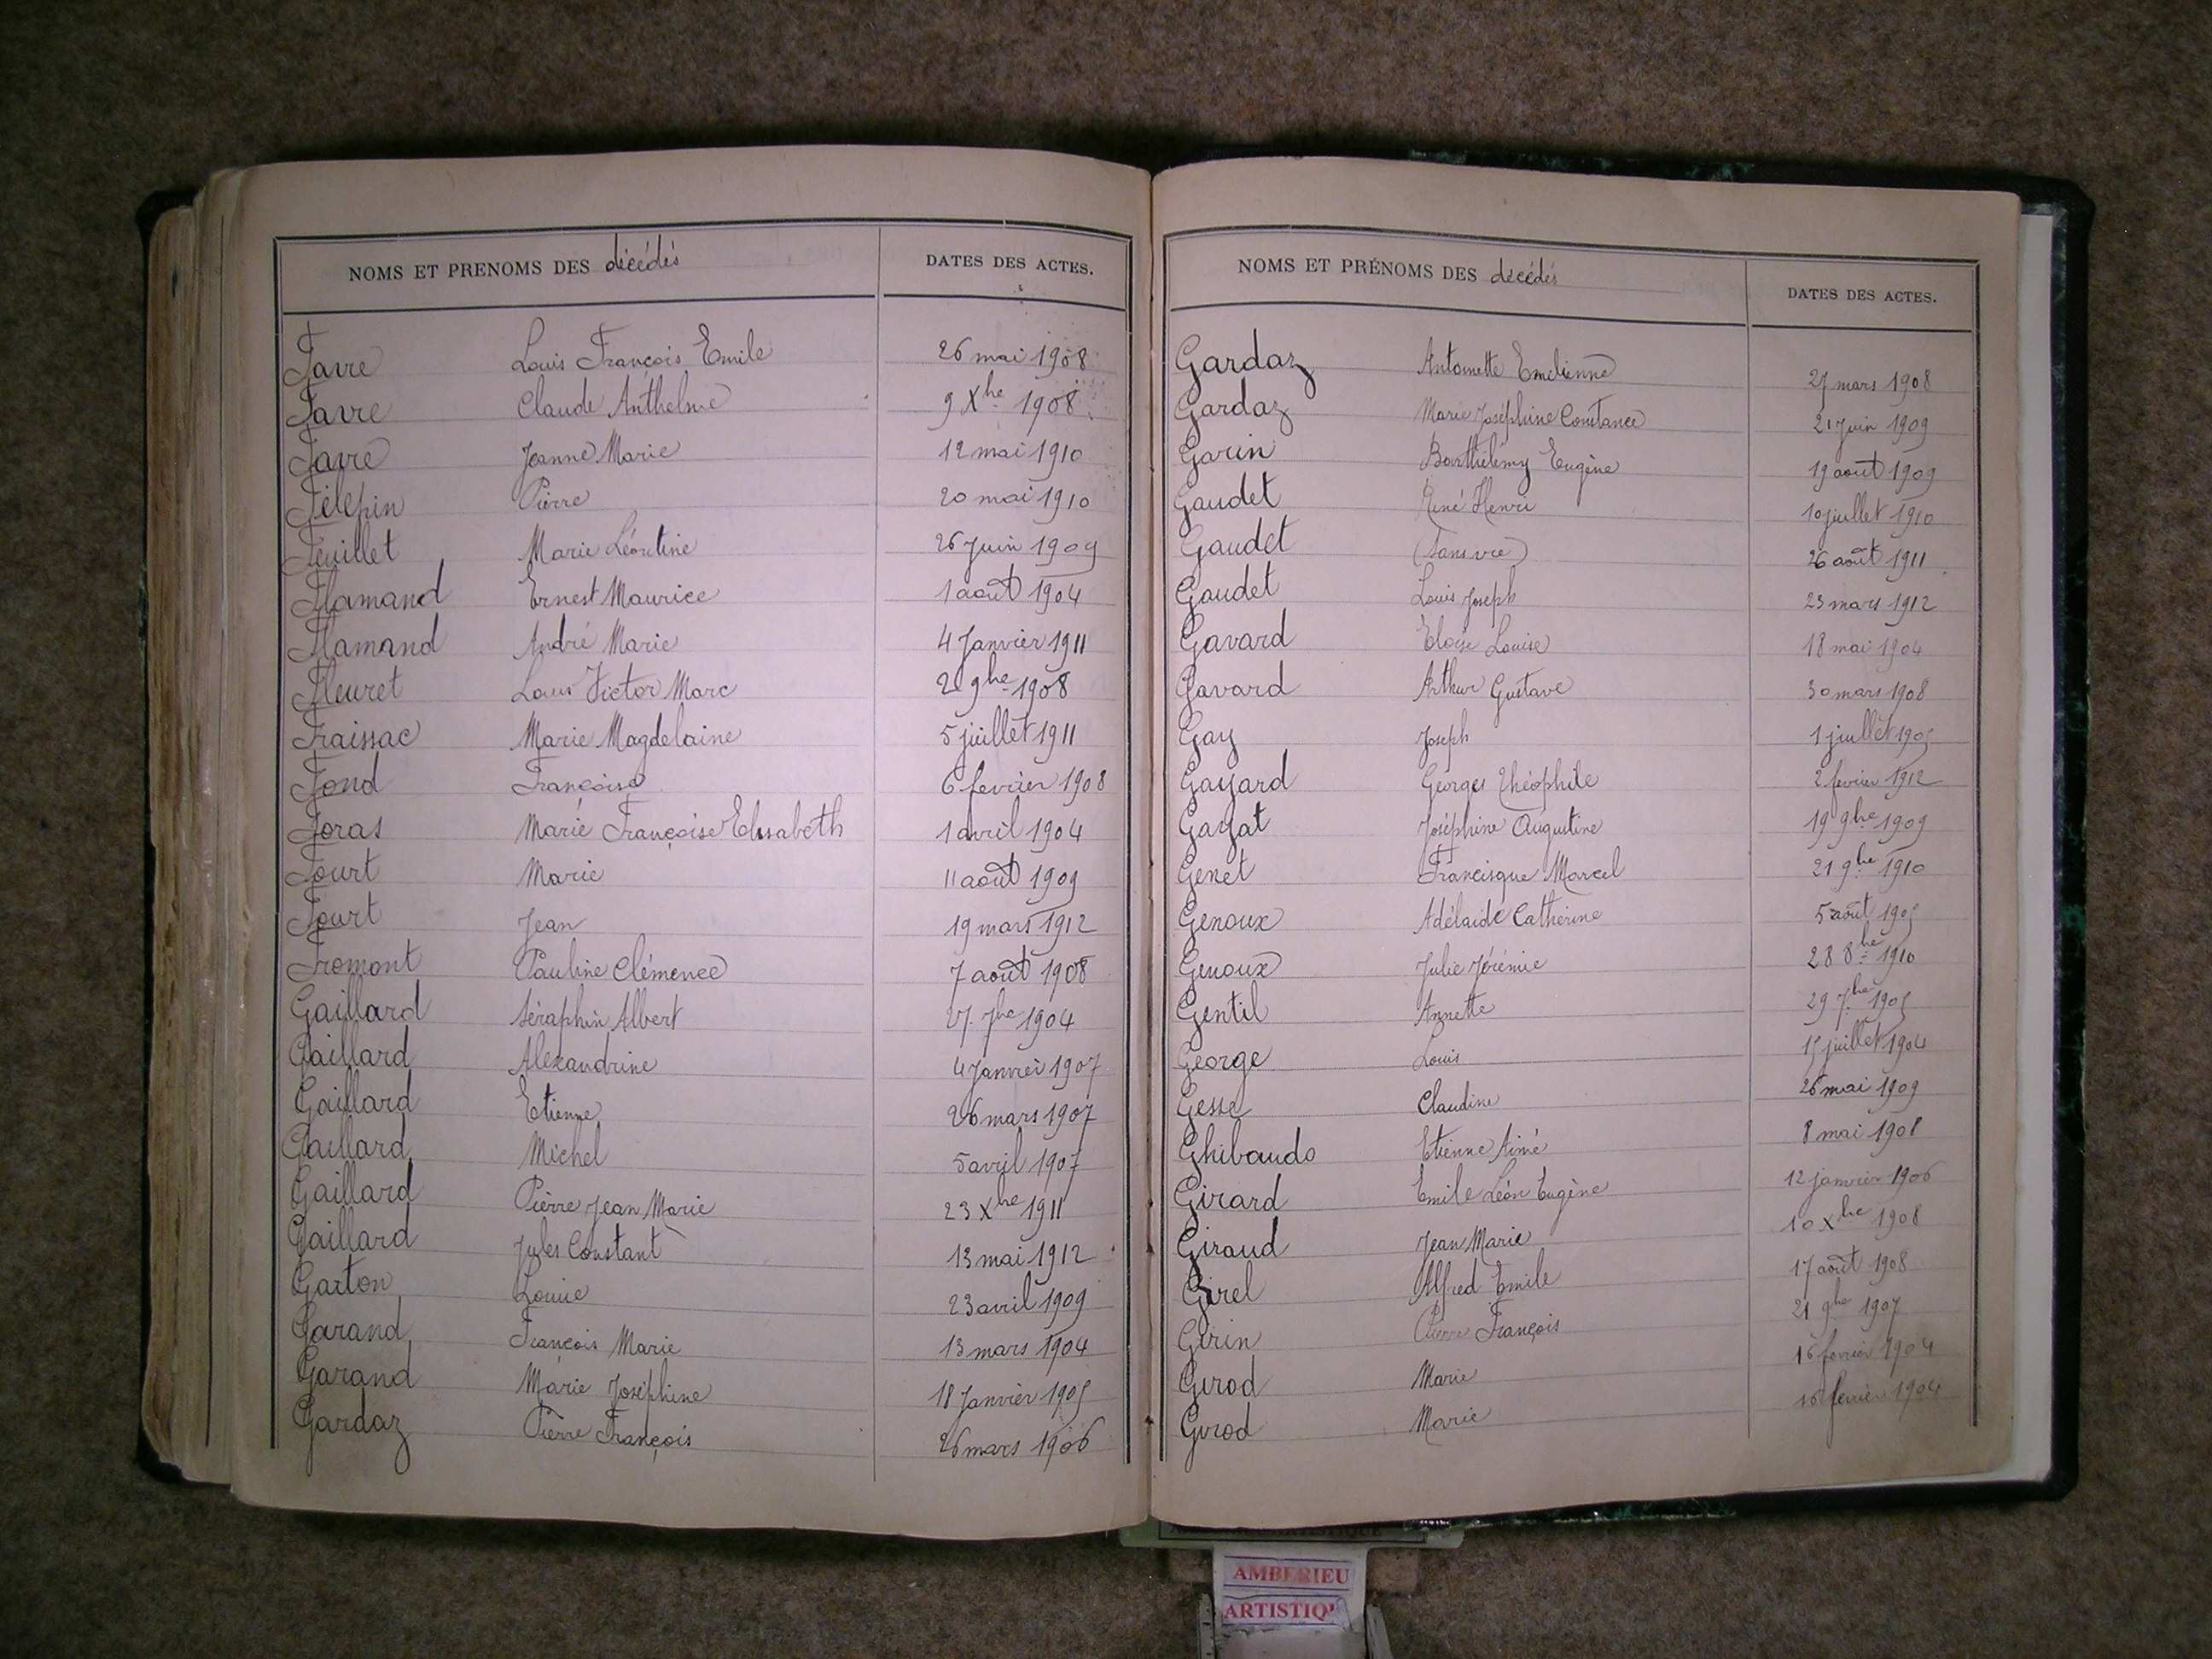 NOMS ET PRENOMS DES décédés DATES DES ACTES.
Favre Louis François Emile 26 mai 1908
Favre Claude Anthelme 9 Xbre 1908
Favre Jeanne Marie 12 mai 1910
Félepin Pierre 20 mai 1910
Feuillet Marie Léontine 26 Juin 1909
Flamand Ernest Maurice 1 août 1904
Flamand André Marie 4 Janvier 1911
Fleuret Louis Victor Marc 2 9bre 1908
Fraissac Marie Magdelaine 5 juillet 1911
Fond Françoise 6 fevrier 1908
Foras Marie Françoise Elisabeth 1 avril 1904
Fourt Marie 11 août 1909
Fourt Jean 19 mars 1912
Fromont Pauline Clémence 7 août 1908
Gaillard Séraphin Albert 27 7bre 1904
Gaillard Alexandrine 4 Janvier 1907
Gaillard Etienne 26 mars 1907
Gaillard Michel 5 avril 1907
Gaillard Pierre Jean Marie 23 Xbre 1911
Gaillard Jules Constant 13 mai 1912
Garton Louise 23 avril 1909
Garand François Marie 13 mars 1904
Garand Marie Joséphine 18 Janvier 1905
Gardaz Pierre François 26 mars 1906
NOMS ET PRÉNOMS DES décédés DATES DES ACTES.
Gardaz Antoinette Emelienne 27 mars 1908
Gardaz Marie Joséphine Constance 21 Juin 1909
Garin Barthélemy Eugène 19 août 1909
Gaudet René Henri 10 juillet 1910
Gaudet (Sans vie) 26 août 1911
Gaudet Louis Joseph 23 mars 1912
Gavard Eloïse Louise 18 mai 1904
Gavard Arthur Gustave 30 mars 1908
Gay Joseph 1 juillet 1905
Gayard Georges Théophile 2 fevrier 1912
Gayat Joséphine Augustine 19 9bre 1909
Genet Francisque Marcel 21 9bre 1910
Genoux Adélaide Catherine 5 août 1905
Genoux Julie Jérémie 28 8bre 1910
Gentil Annette 29 7bre 1905
George Louis 15 juillet 1904
Gesse Claudine 26 mai 1909
Ghibaudo Etienne Aimé 8 mai 1908
Girard Emile Léon Eugène 12 janvier 1906
Giraud Jean Marie 10 Xbre 1908
Girel Alfred Emile 17 août 1908
Girin Pierre François 21 9bre 1907
Girod Marie 16 fevrier 1904
Girod Marie 16 fevrier 1904
AMBERIEU
ARTISTIQU